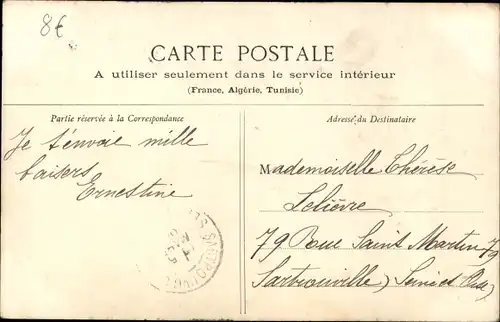 8€
CARTE POSTALE
A utiliser seulement dans le service intérieur
(France, Algérie, Tunisie)
Partie réservée à la Correspondance
Adresse du Destinataire
Je t'envoie mille
baisers
Ernestine
Mademoiselle Thérèse
Lelièvre
79 Rue Saint Martin 79
Sartrouville) Seine et Oise)